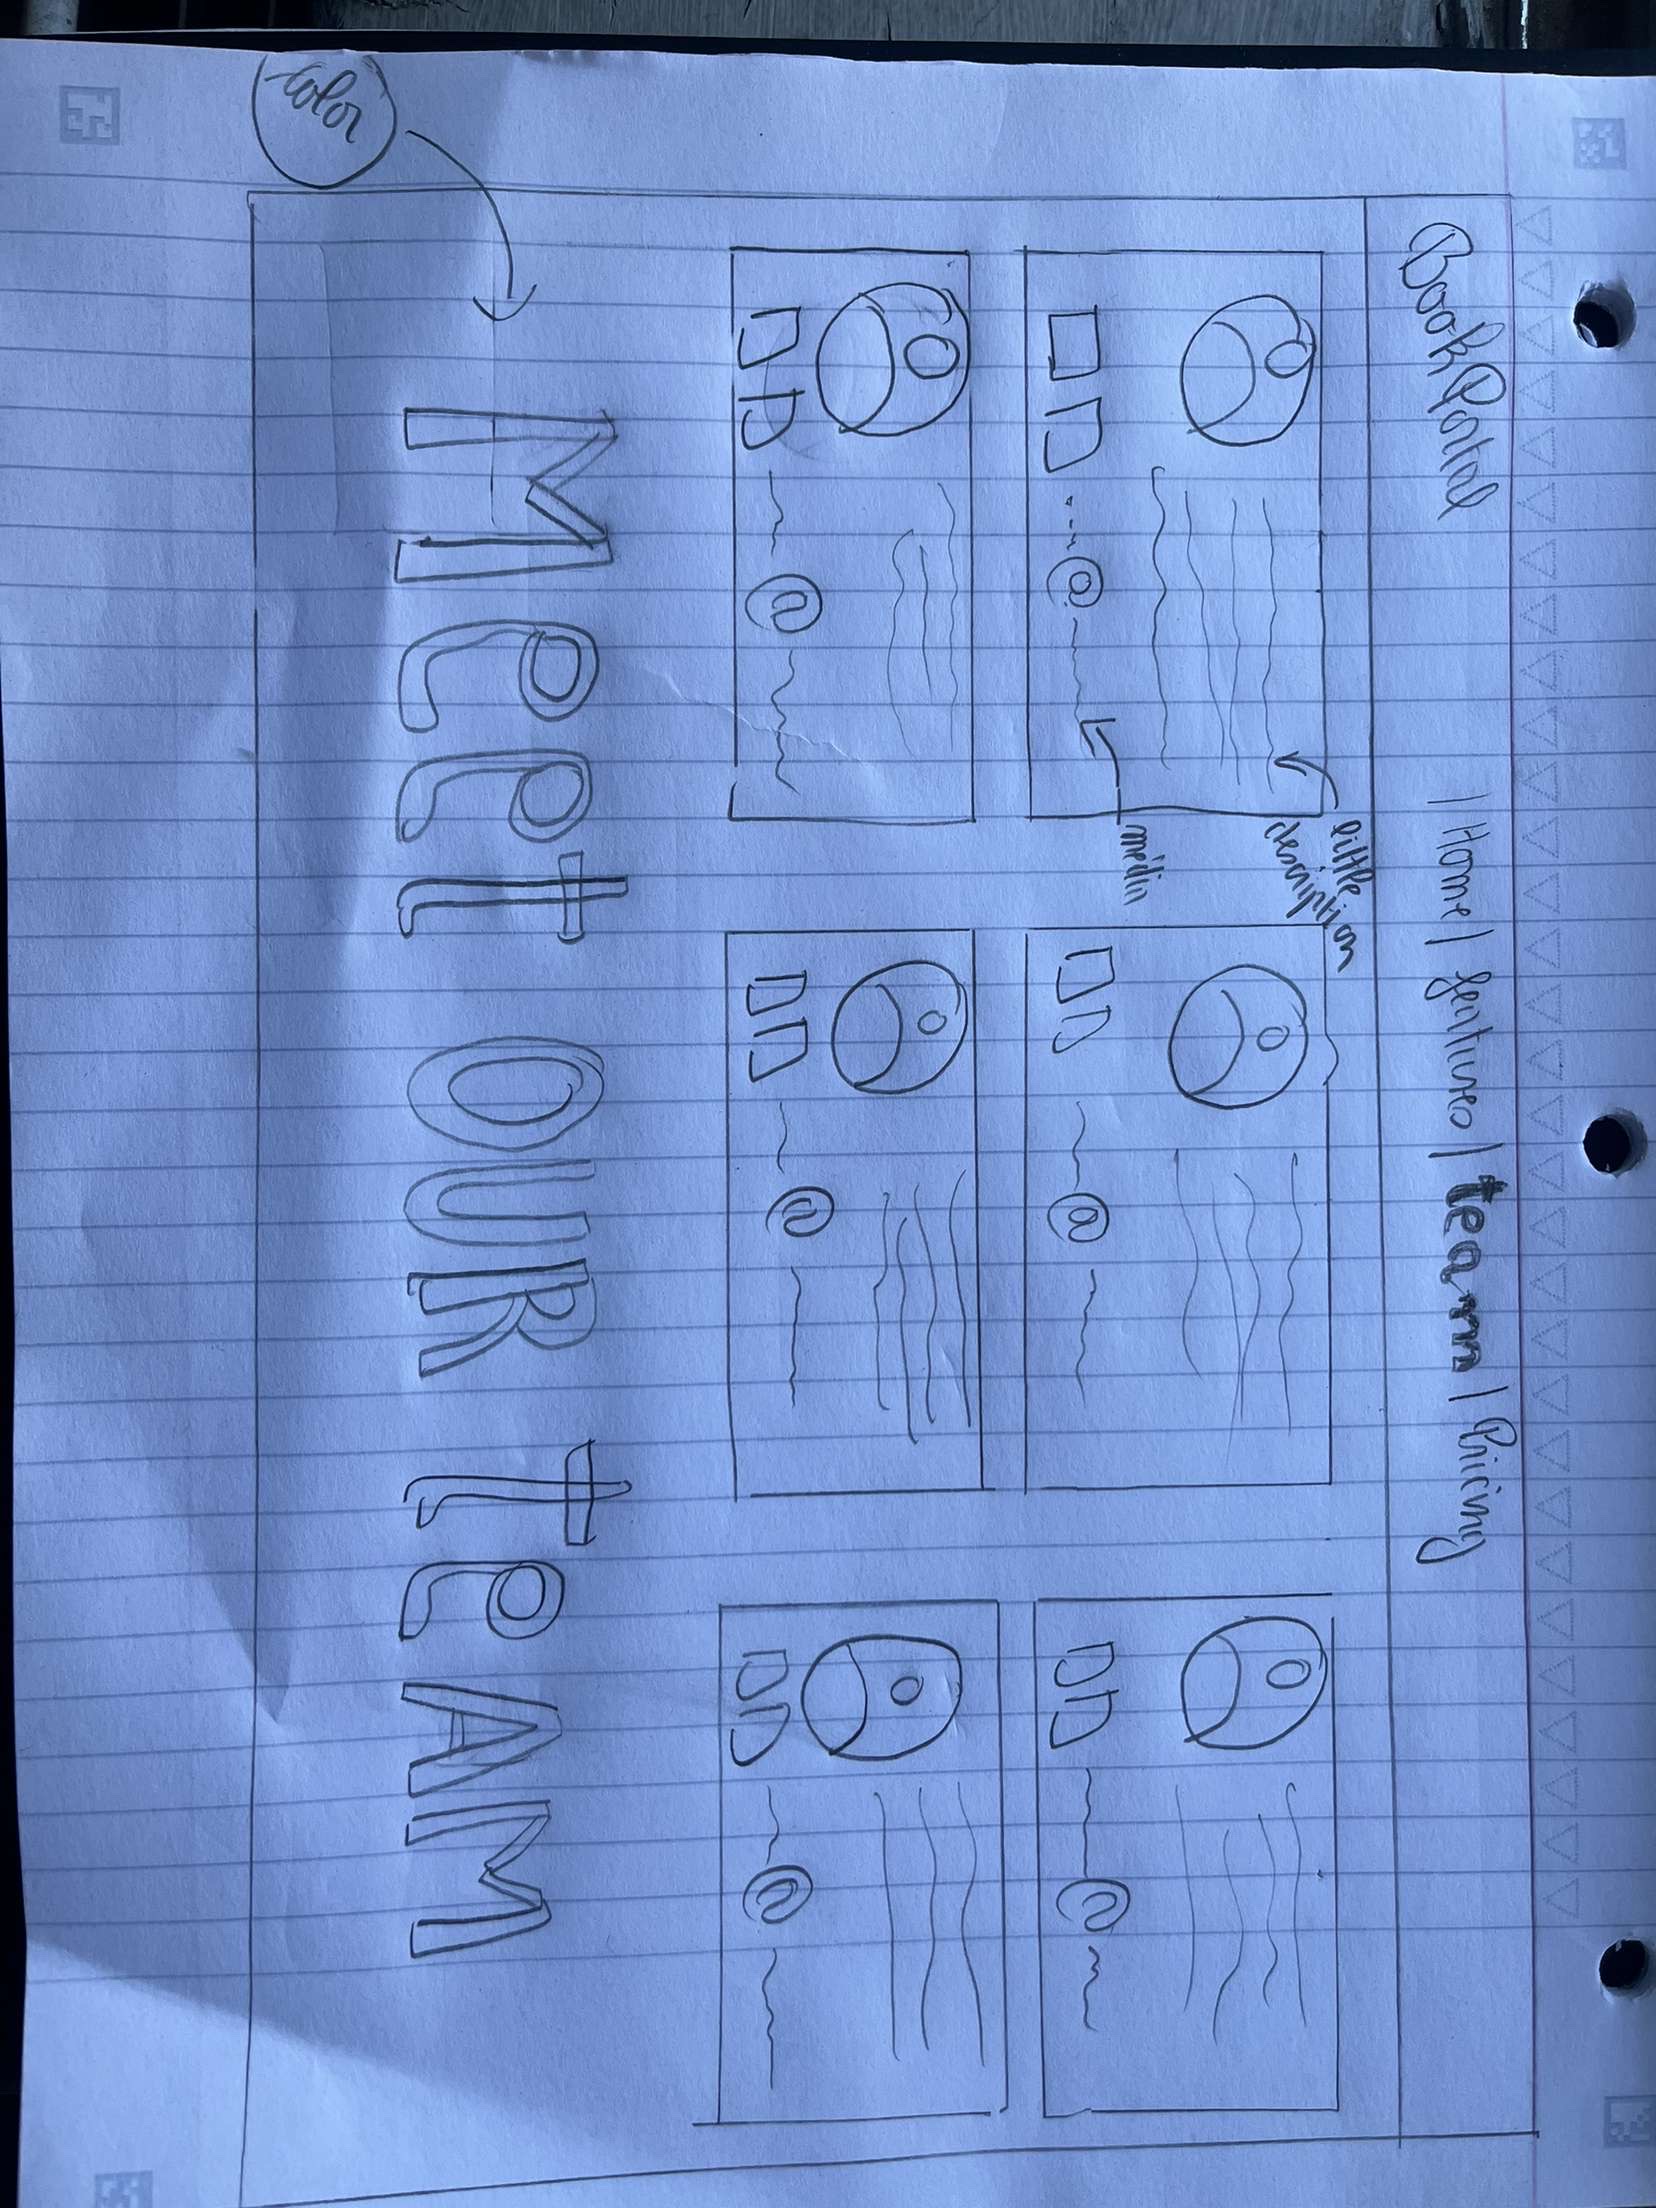 BookPortal | Home | features | team | Pricing
little
description
média
@ @ @
@ @ @
Color
Meet OUR teAM